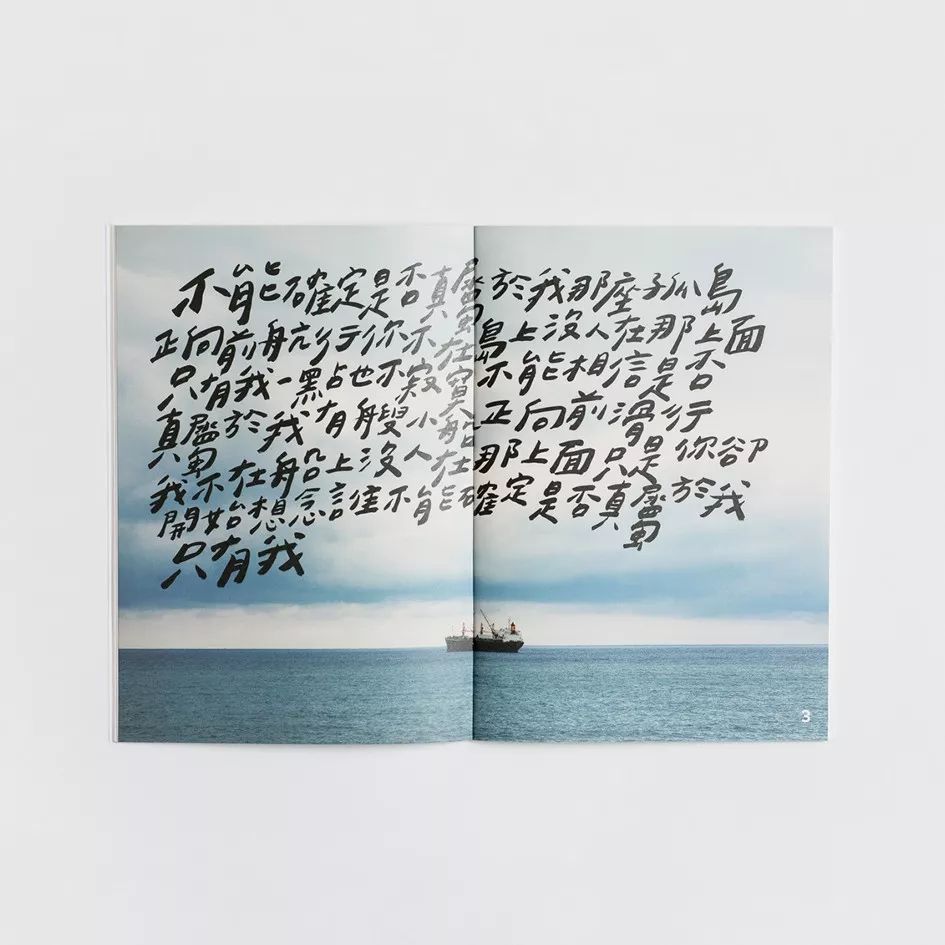 不能確定是否真屬於我那座孤島
正向前航行你不在島上沒人在那上面
只有我一點也不寂寞不能相信是否
真屬於我有艘小船正向前滑行
我不在船上沒人在那上面只是你卻
開始想念誰不能確定是否真屬於我
只有我
3